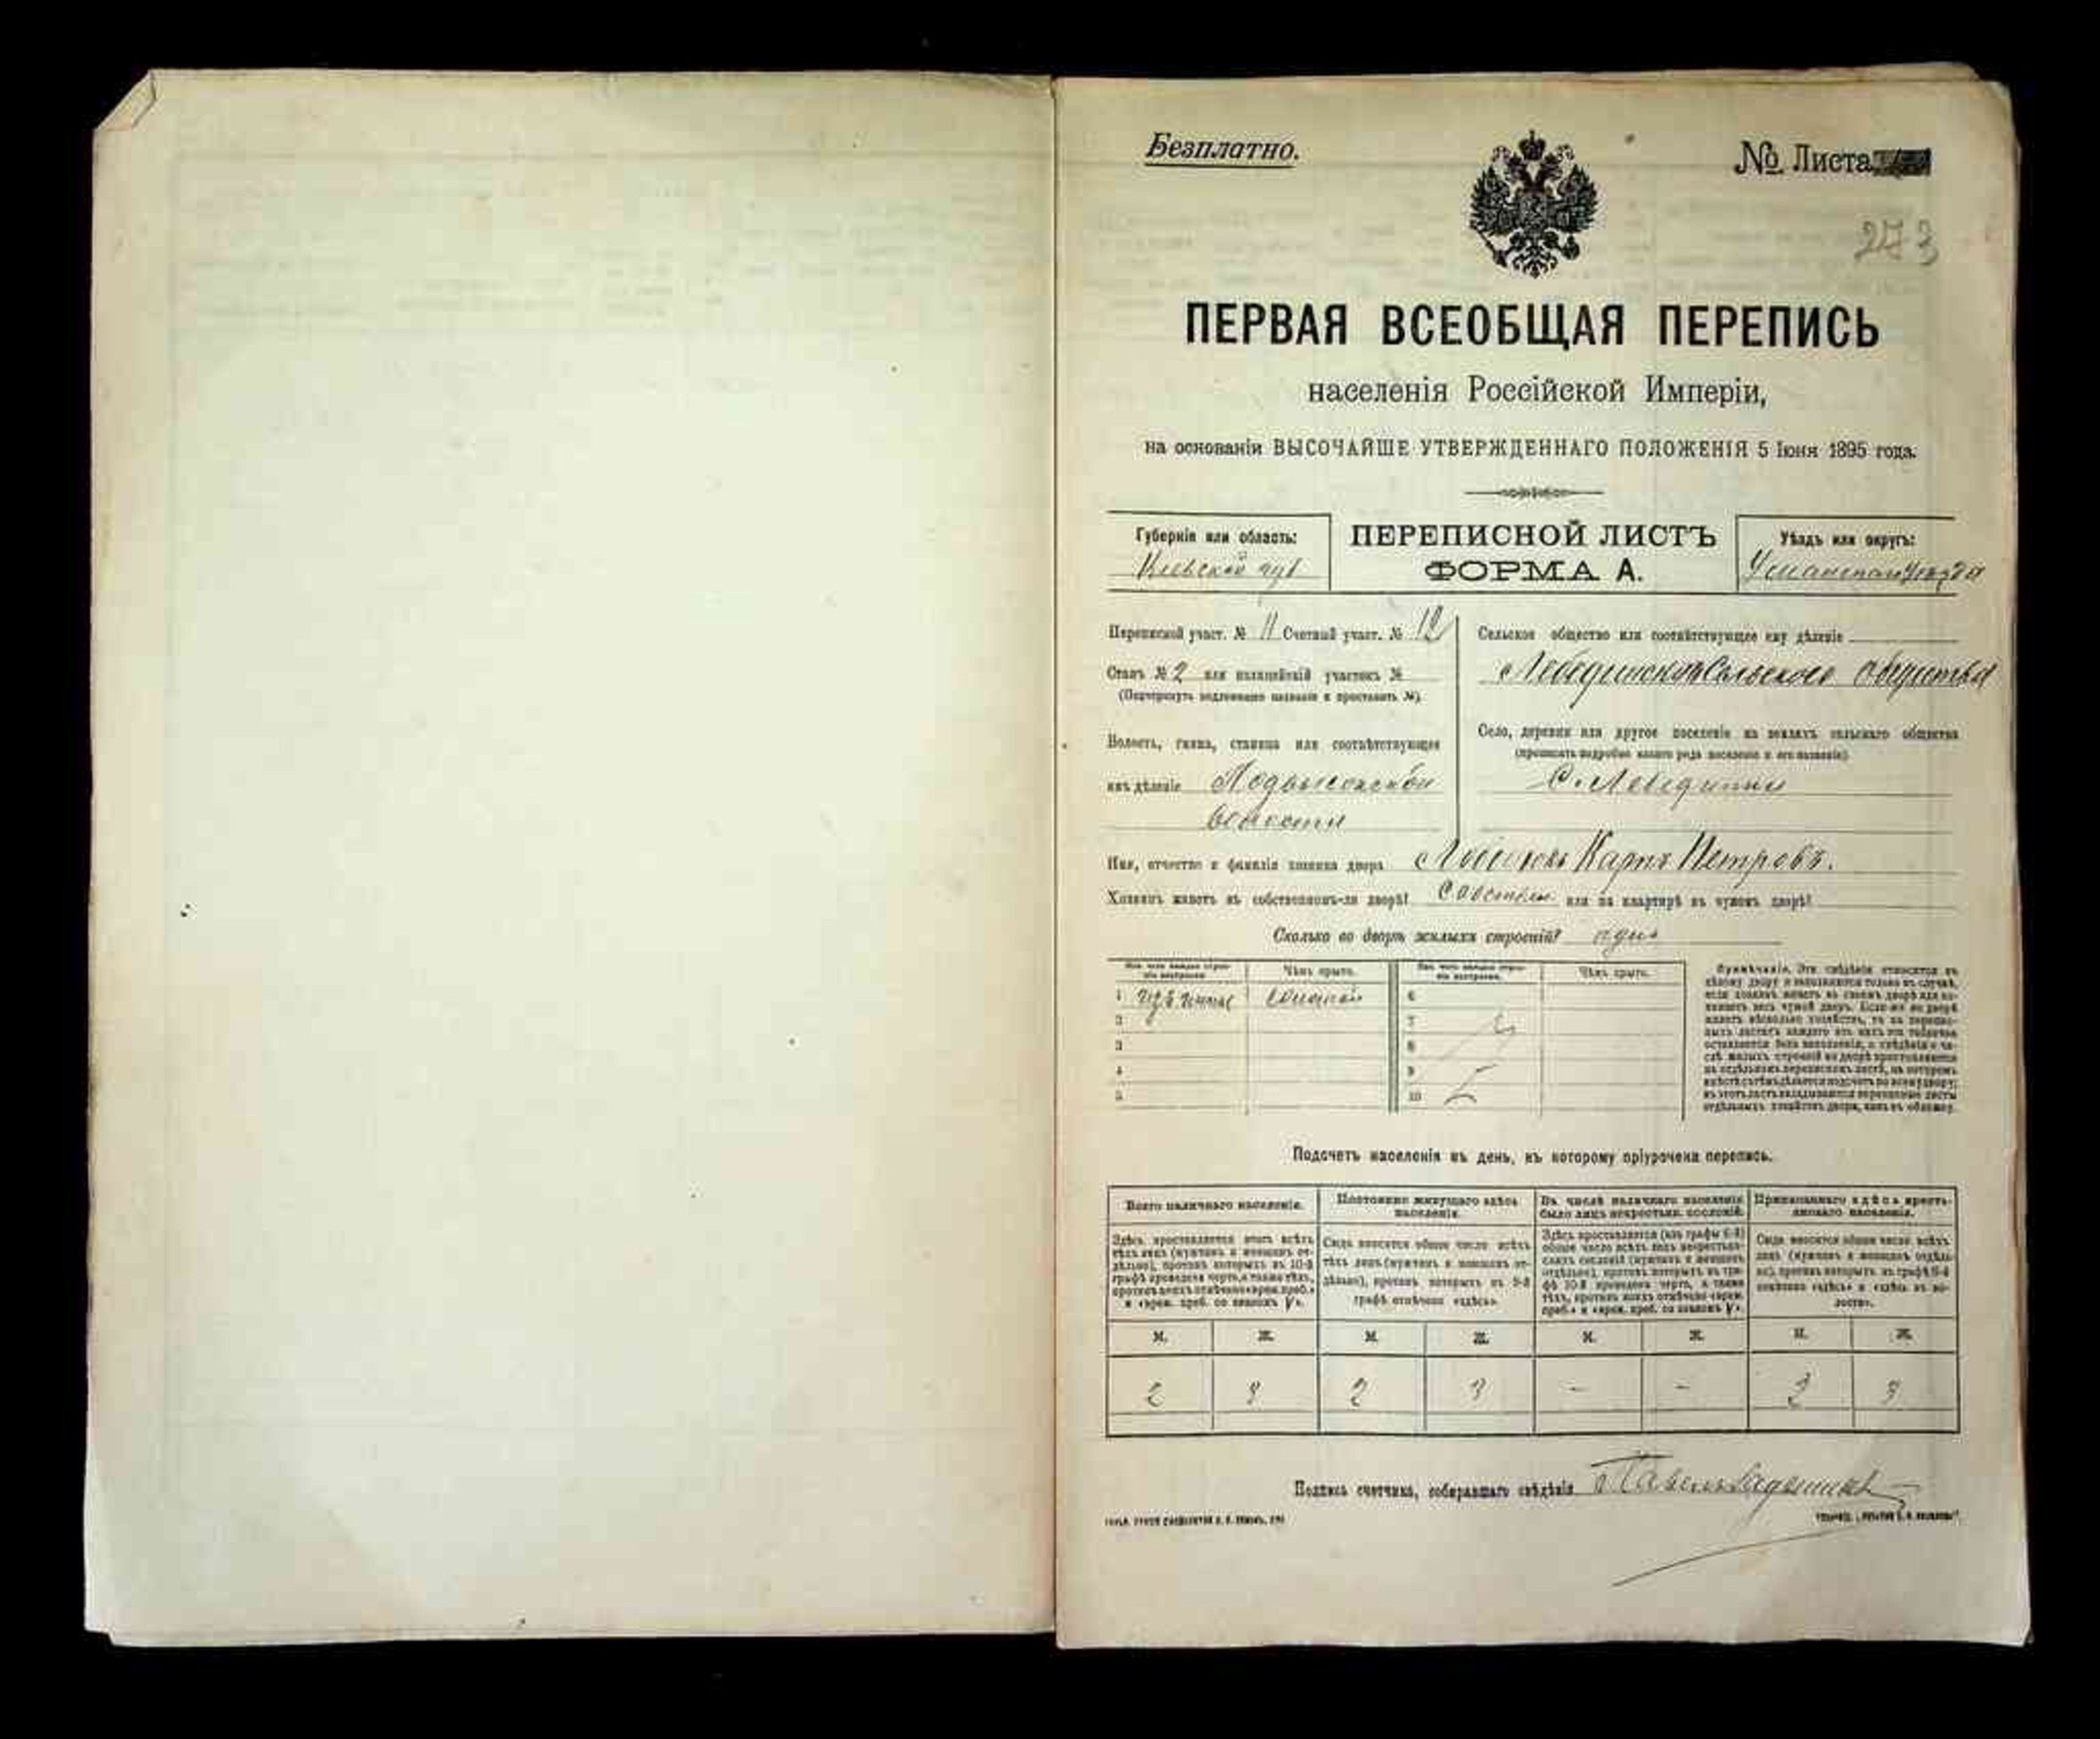 Безплатно.
№ Листа
273
ПЕРВАЯ ВСЕОБЩАЯ ПЕРЕПИСЬ
населенія Россійской Имперіи,
на основаніи ВЫСОЧАЙШЕ УТВЕРЖДЕННАГО ПОЛОЖЕНІЯ 5 Іюня 1895 года.
Губернія или область:
Кіевской губ
ПЕРЕПИСНОЙ ЛИСТЪ
ФОРМА А.
Уѣздъ или округъ:
Уманскаго уѣзда
Переписной участ. № 11 Счетный участ. № 12
Станъ № 2 или полицейскій участокъ №
(Подчеркнуть надлежащее названіе и проставить №).
Волость, гмина, станица или соотвѣтствующее
имъ дѣленіе Подвысокской
волости
Сельское общество или соотвѣтствующее ему дѣленіе
Лебединскаго Сельскаго общества
Село, деревня или другое поселеніе на земляхъ сельскаго общества
(прописать подробно какого рода поселеніе и его названіе)
С. Лебединки
Имя, отчество и фамилія хозяина двора Карпъ Петровъ.
Хозяинъ живетъ въ собственномъ-ли дворѣ? собствен или на квартирѣ въ чужомъ дворѣ?
Сколько во дворѣ жилыхъ строеній? одно
Изъ чего каждое строеніе построено.
Чѣмъ крыто.
Изъ чего каждое строеніе построено.
Чѣмъ крыто.
1 изъ глины соломой 6
2 7
3 8
4 9
5 10
Примѣчаніе. Эти свѣдѣнія относятся къ
цѣлому двору и заполняются только въ случаѣ,
если хозяинъ живетъ въ своемъ дворѣ или занимаетъ весь чужой дворъ. Если же во дворѣ
живетъ нѣсколько хозяйствъ, то на переписныхъ листахъ каждаго изъ нихъ эта табличка
оставляется безъ заполненія, а свѣдѣнія о числѣ жилыхъ строеній во дворѣ проставляются
на отдѣльномъ переписномъ листѣ, на которомъ
вмѣстѣ съ тѣмъ дѣлается подсчетъ по всему двору;
въ этотъ листъ вкладываются переписные листы
отдѣльныхъ хозяйствъ двора, какъ въ обложку.
Подсчетъ населенія въ день, къ которому пріурочена перепись.
Всего наличнаго населенія.
Постоянно живущаго здѣсь населенія.
Въ числѣ наличнаго населенія было лицъ некрестьян. сословій.
Приписаннаго здѣсь крестьянскаго населенія.
Здѣсь проставляется итогъ всѣхъ тѣхъ лицъ (мужчинъ и женщинъ отдѣльно), противъ которыхъ въ 10-й графѣ проведена черта, а также тѣхъ, противъ коихъ отмѣчено «врем. преб.» и «врем. преб. со знакомъ V».
Сюда вносится общее число всѣхъ тѣхъ лицъ (мужчинъ и женщинъ отдѣльно), противъ которыхъ въ 9-й графѣ отмѣчено «здѣсь».
Здѣсь проставляется (изъ графы 6-й) общее число всѣхъ лицъ некрестьянскихъ сословій (мужчинъ и женщинъ отдѣльно), противъ которыхъ въ графѣ 10-й проведена черта, а также тѣхъ, противъ коихъ отмѣчено «врем. преб.» и «врем. преб. со знакомъ V».
Сюда вносится общее число всѣхъ лицъ (мужчинъ и женщинъ отдѣльно), противъ которыхъ въ графѣ 8-й помѣчено «здѣсь» и «здѣсь въ волости».
М. Ж. М. Ж. М. Ж. М. Ж.
2 3 2 3 - - 2 3
Подпись счетчика, собиравшаго свѣдѣнія Павелъ